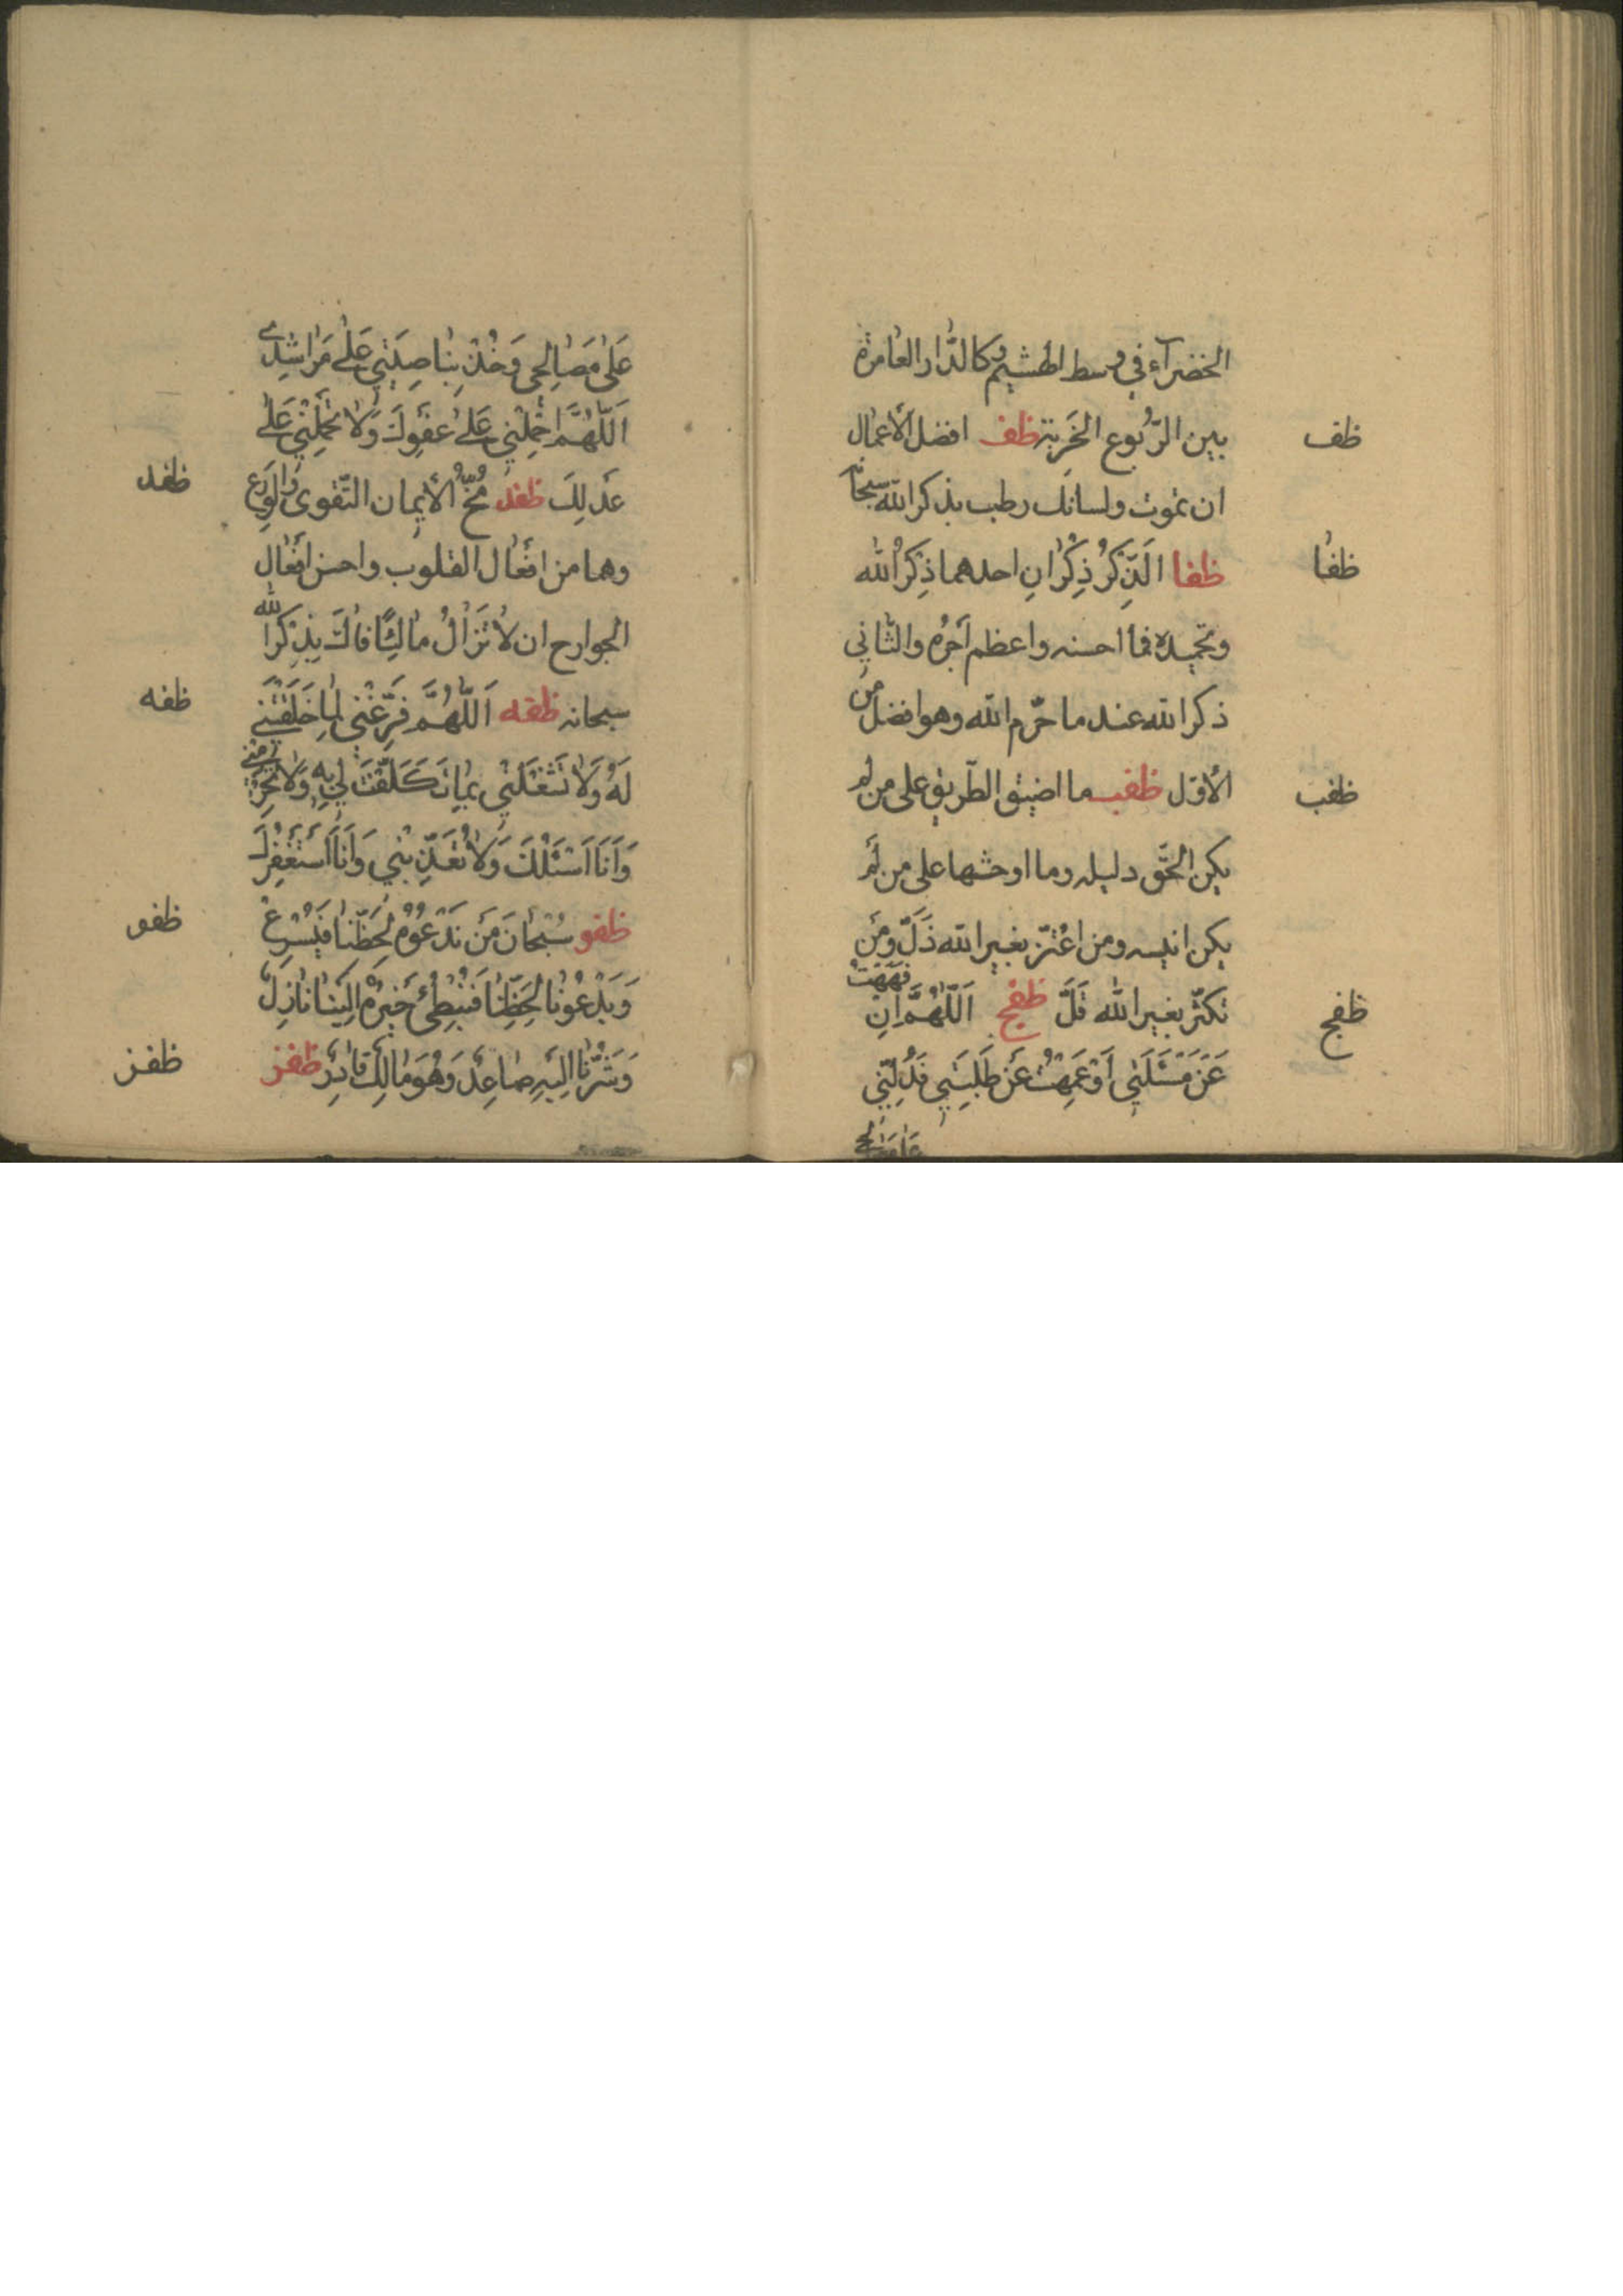 الخضرآء في وسط الهشيم وكالدّار العامرة
بين الرّبوع الخَربة ظف افضل الأعمال
ظف
ان تموت ولسانك رطب بذكر الله سبحا
ظفا الَذِّكرُ ذِكْرانِ احدهما ذِكْرُ الله
ظفا
وتحميده فما احسنه واعظم اَجرُه والثّاني
ذكر الله عند ما حرّم الله وهو افضل من
الأوّل ظفب ما اضيق الطّريق على من لم
ظفب
يكن الحقّ دليله وما اوحشها على من لَم
يكن انيسه ومن اعْتزّ بغير الله ذَلَّ ومَن
تكثّر بغير الله قَلَّ ظفج اَللّهُمَّ اِن فَهَهتُ
ظفج
عَن مَسْئَلَتي اَوْ عَمِهْتُ عَن طَلِبَتي فَدُلَّني
على مصالحي
عَلى مَصالِحي وَخُذْ بِناصِيَتي عَلى مَراشِدي
اَللّهُمَّ احْمِلْني عَلى عَفوِكَ وَلا تَحمِلْني عَلى
عَدلِكَ ظفد مُخُّ الأيمان التّقوى والورَع
ظفد
وهما من افعال القلوب واحسن افعال
الجوارح ان لا تَزالُ مالِئًا فاكَ بذِكرِ الله
سبحانه ظفه اَللّهُمَّ فَرِّغْني لِما خَلَقْتَني
ظفه
لَهُ وَلا تَشْغَلْني بما تَكَلَّفْتَ لي بِه وَلا تَحرِمْني
وَاَنَا اَسْئَلُكَ وَلا تُعَذِّبْني وَاَنَا اَسْتَغْفِرُكَ
ظفو سُبْحانَ مَن نَدْعُوهُ لِحَظِّنا فَيُسْرِعُ
ظفو
وَيَدْعُونا لِحَظِّنا فَنُبْطِئُ خَيرُهُ اِلَينا نازِلٌ
وَشَرُّنا اِلَيهِ صاعِدٌ وَهُوَ مالِكٌ قادِرٌ ظفز
ظفز